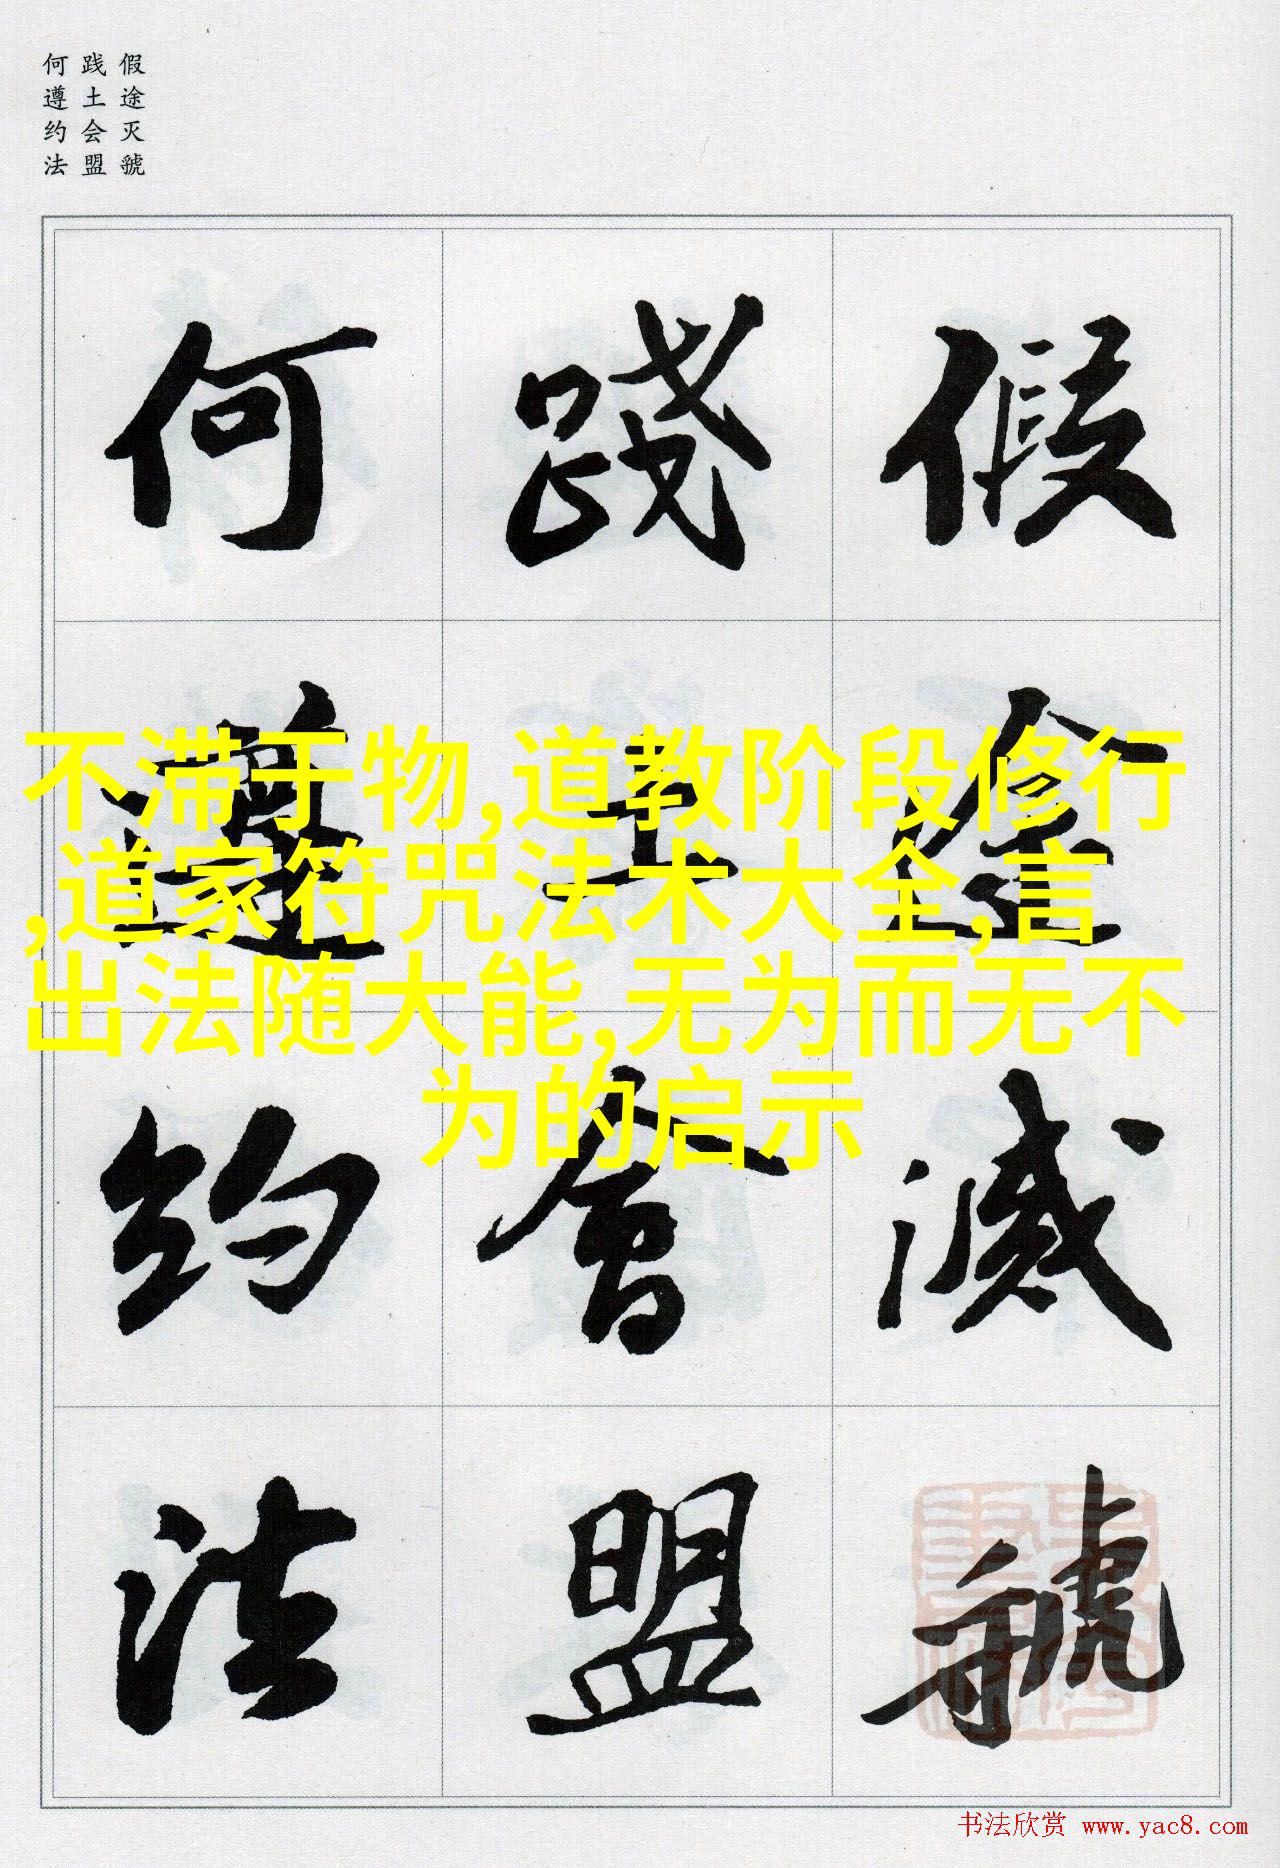 假途灭虢
践土会盟
何遵约法
假途滅虢
踐土會盟
何遵約法
不滞于物,道教阶段修行
,道家符咒法术大全,言
出法随大能,无为而无不
为的启示
书法欣赏 www.yac8.com